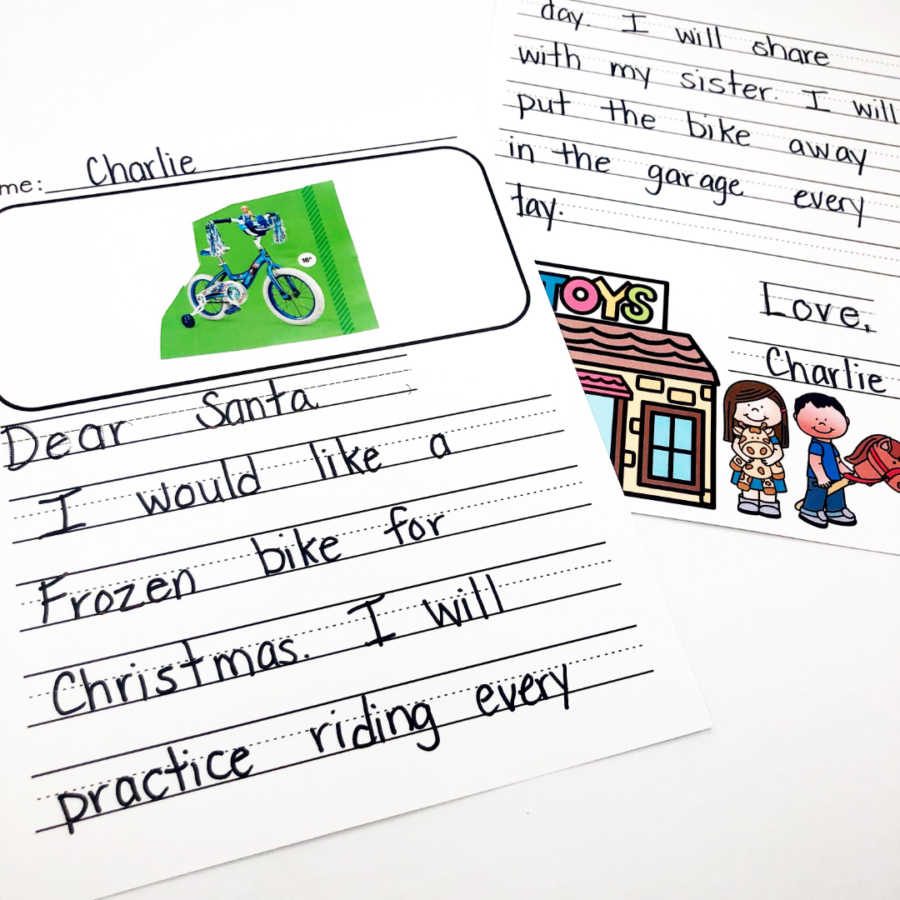 me: Charlie
16"
Dear Santa
I would like a
Frozen bike for
Christmas. I will
practice riding every
day. I will share
with my sister. I will
put the bike away
in the garage every
day.
TOYS
Love,
Charlie